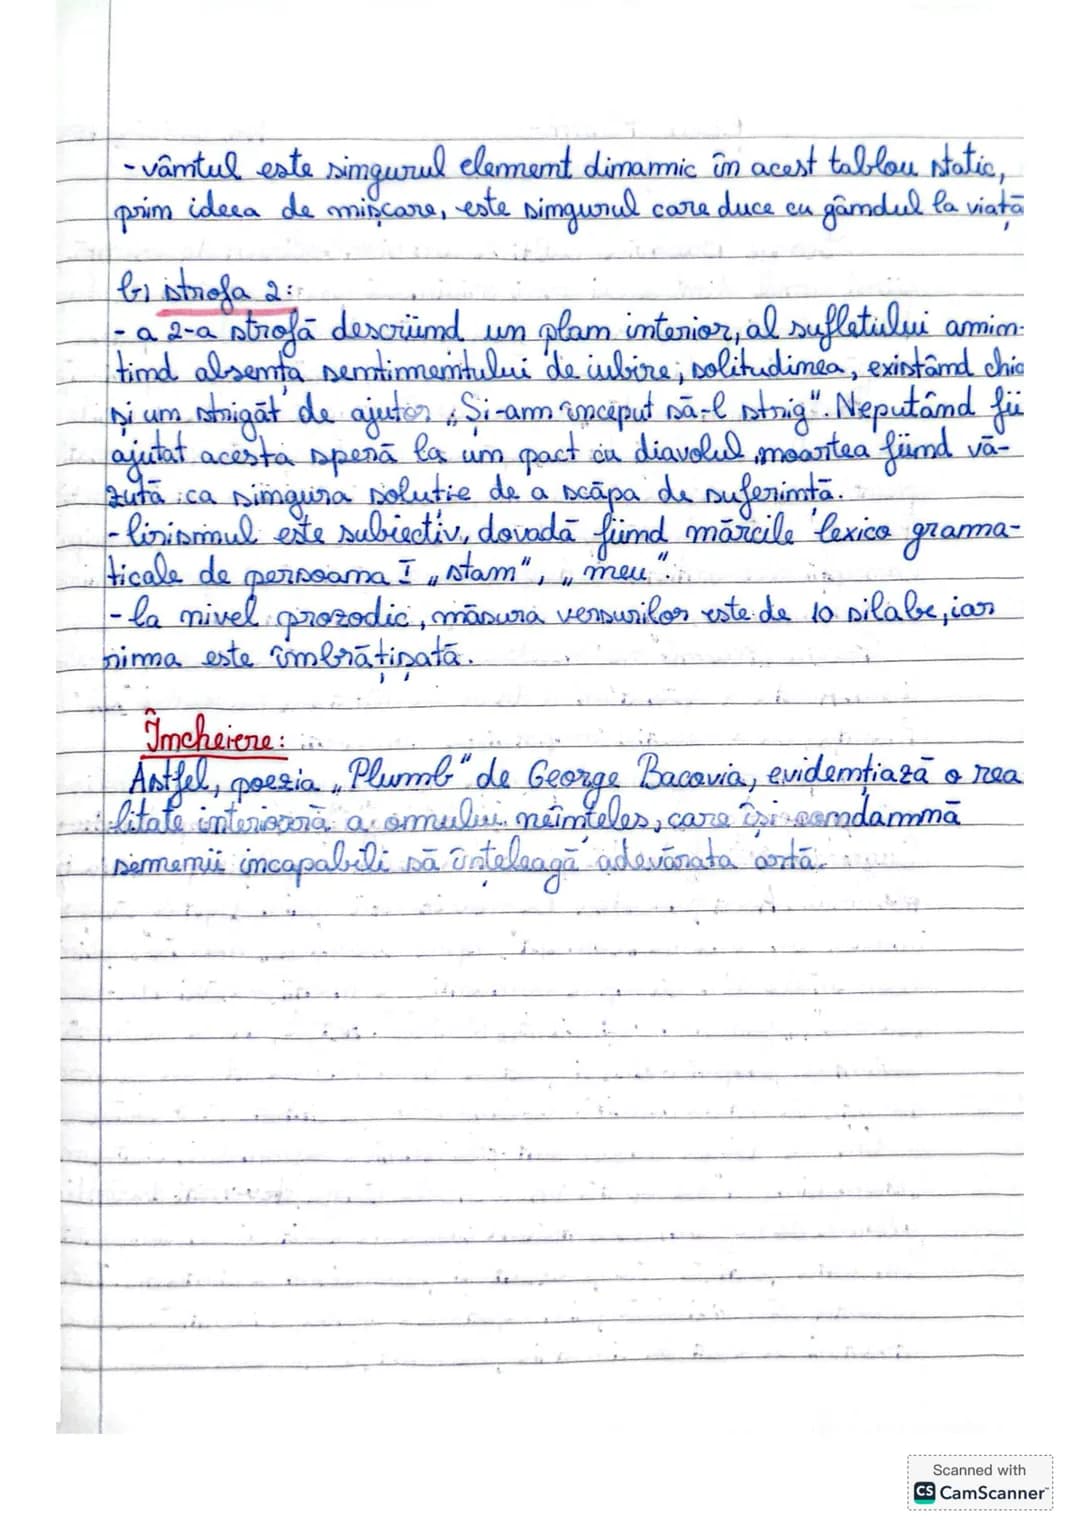 - vântul este singurul element dinamic în acest tablou static,
prin ideea de mișcare, este singurul care duce cu gândul la viață
b) strofa 2:
- a 2-a strofă descriind un plan interior, al sufletului amin-
tind absența sentimentului de iubire, solitudinea, existând chia
și un strigăt de ajutor „Și-am început să-l strig". Neputând fii
ajutat acesta speră la un pact cu diavolul, moartea fiind vă-
zută ca singura soluție de a scăpa de suferință.
- lirismul este subiectiv, dovadă fiind mărcile lexico grama-
ticale de persoana I „stam", „meu".
- la nivel prozodic, măsura versurilor este de 10 silabe, iar
rima este îmbrățișată.
Încheiere:
Astfel, poezia „Plumb" de George Bacovia, evidențiază o rea
litate interioară a omului neînțeles, care își condamnă
semenii incapabili să înțeleagă adevărata artă.
Scanned with
CS CamScanner